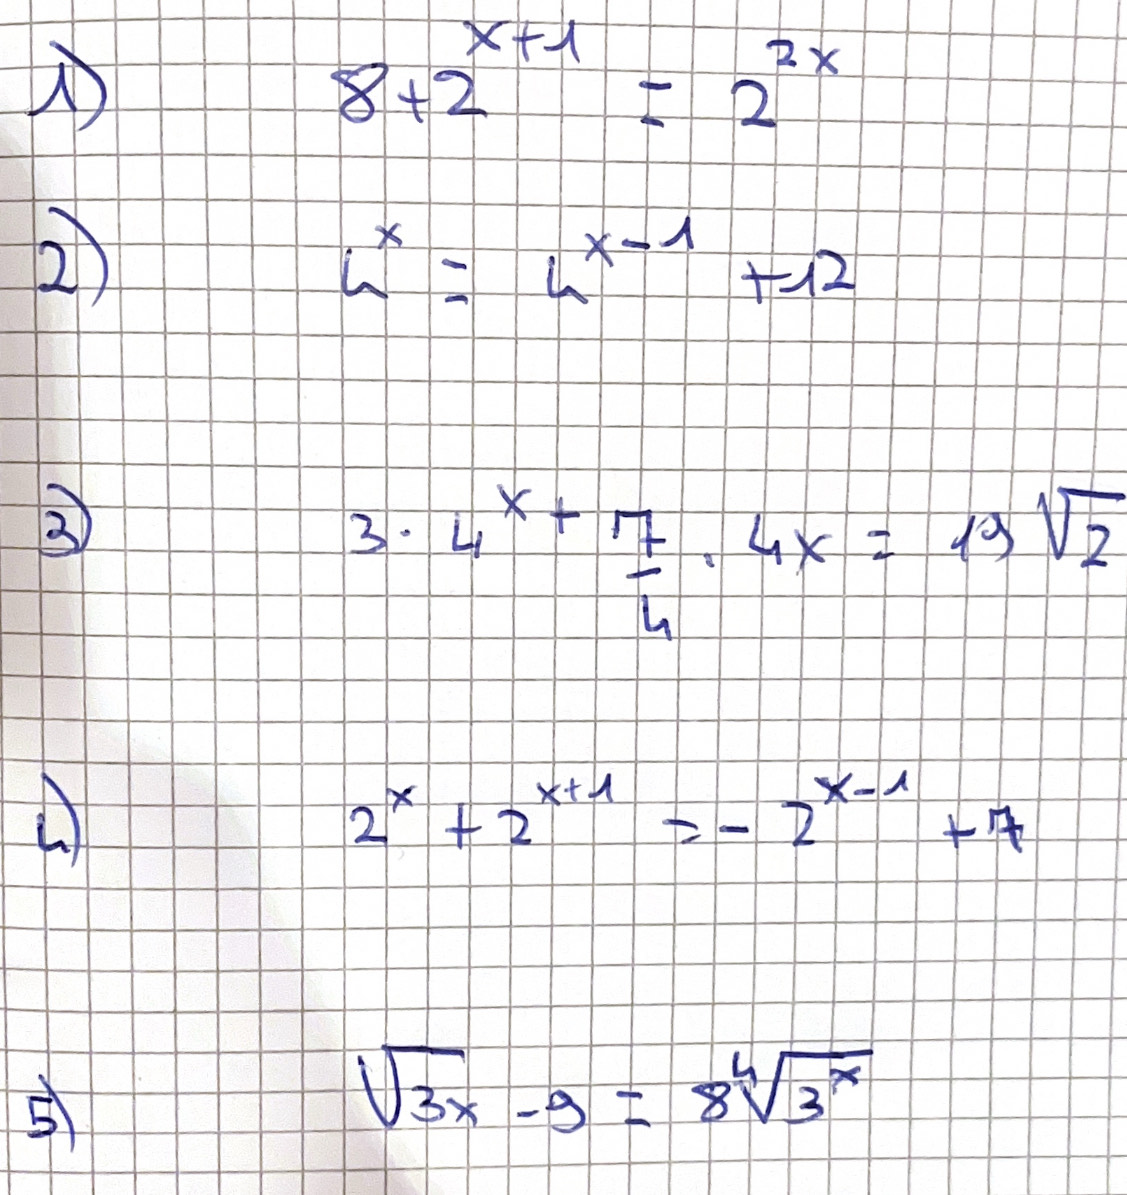 1) 8+2^{x+1} = 2^{2x}
2) 4^x = 4^{x-1} +12
3) 3 · 4^x + \frac{7}{4} · 4x = 19 \sqrt{2}
4) 2^x + 2^{x+1} = - 2^{x-1} + 7
5) \sqrt{3x} - 9 = 8 \sqrt[4]{3^x}